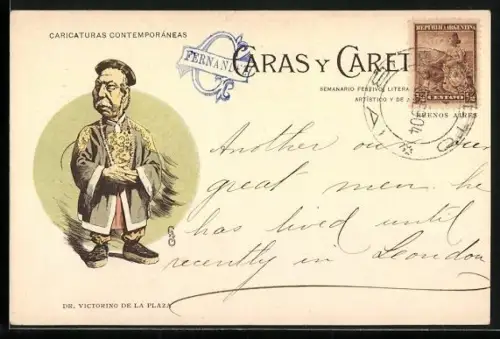 CARICATURAS CONTEMPORÁNEAS
FERNAND
CARAS Y CARET
SEMANARIO FESTIVO, LITERA
ARTÍSTICO Y DE A
REPUBLICA ARGENTINA
CENTAVO
BUENOS AIRES
04
Another our
great men. he
has lived until
recently in Leondon
DR. VICTORINO DE LA PLAZA